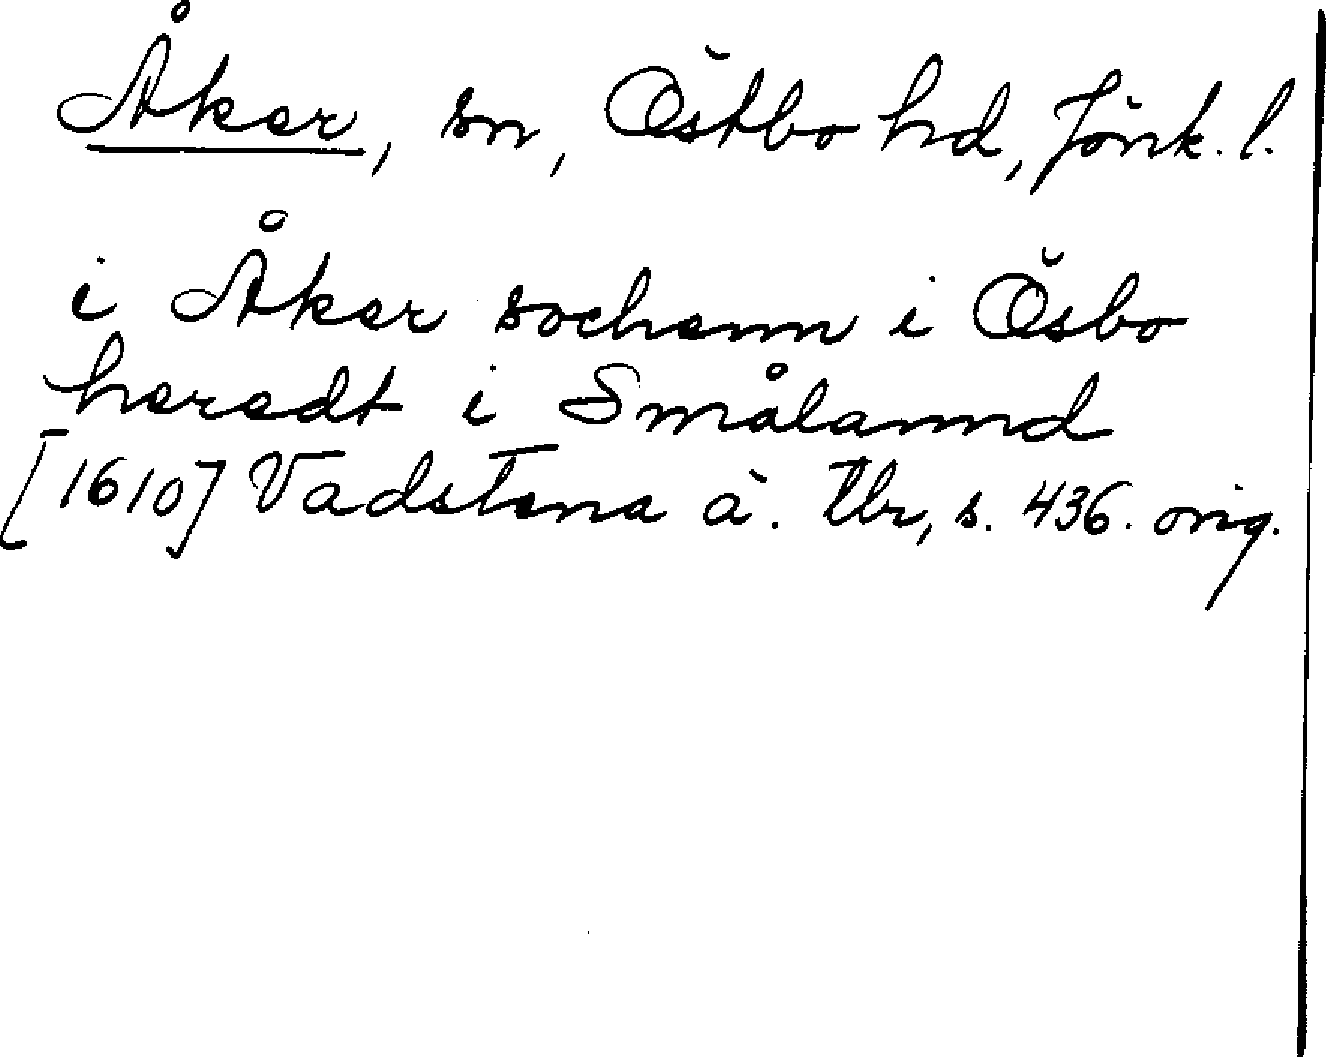 Åker, sn, Östbo hd, Jönk. l.
i Åker sochenn i Ösbo
heredt i Smålannd
[1610] Vadstena ä. tbr, s. 436. orig.